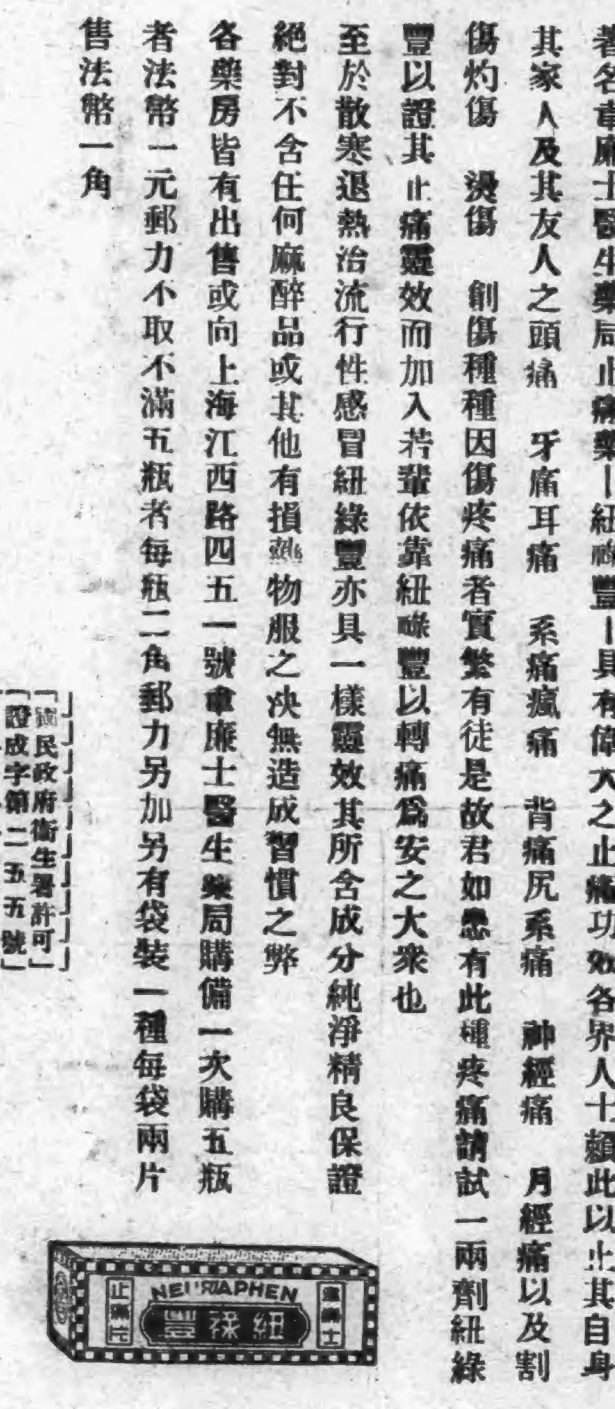 著名韋廉士醫生藥局止痛藥—紐祿豐—具有偉大之止痛功效各界人士賴此以止其自身
其家人及其友人之頭痛 牙痛耳痛 系痛瘋痛 背痛尻系痛 神經痛 月經痛以及割
傷灼傷 燙傷 創傷種種因傷疼痛者實繁有徒是故君如患有此種疼痛請試一兩劑紐綠
豐以證其止痛靈效而加入若輩依靠紐祿豐以轉痛爲安之大衆也
至於散寒退熱治流行性感冒紐綠豐亦具一樣靈效其所含成分純淨精良保證
絕對不含任何麻醉品或其他有損物服之決無造成習慣之弊
各藥房皆有出售或向上海江西路四五一號韋廉士醫生藥局購備一次購五瓶
者法幣一元郵力不取不滿五瓶者每瓶二角郵力另加另有袋裝一種每袋兩片
售法幣一角
「國民政府衛生署許可」
「證成字第二五五號」
韋廉士
NEURAPHEN
紐祿豐
止痛片